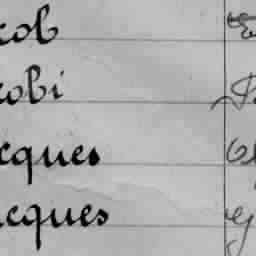 cob
cobi
cques
cques